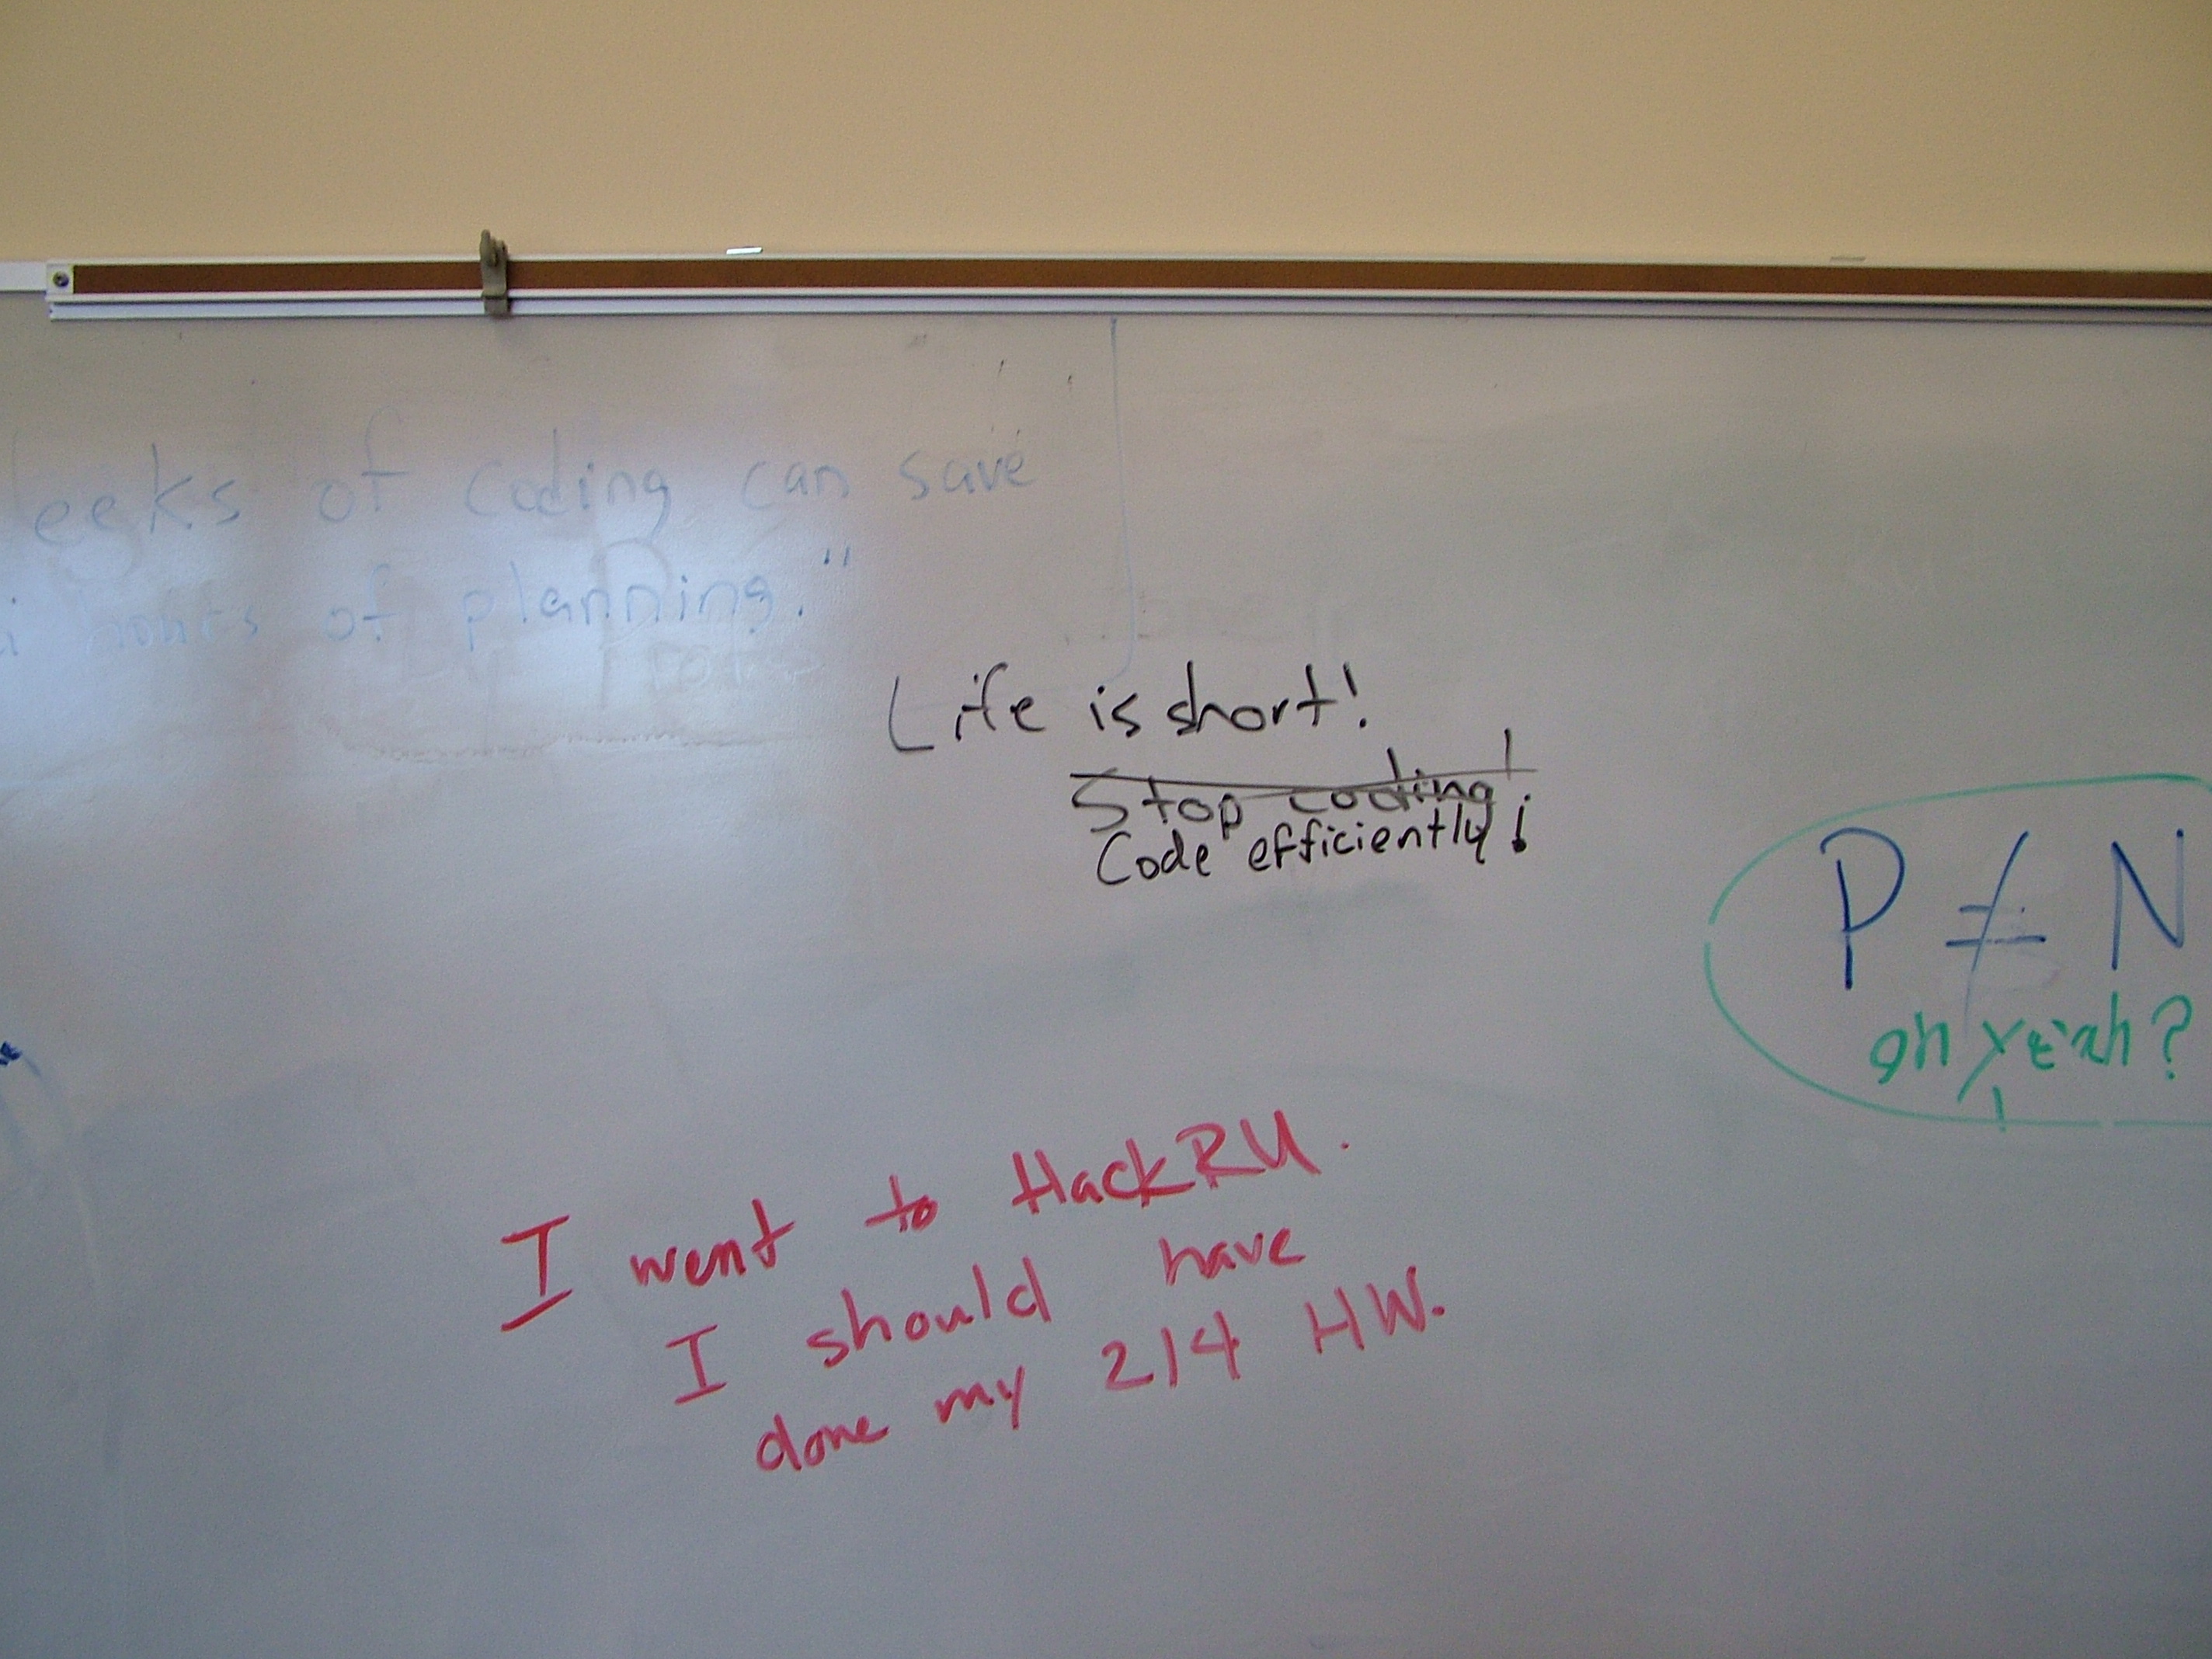 eeks of coding can save
hours of planning."
Life is short!
Stop coding!
Code efficiently!
P ≠ N
oh yeah?
I went to HackRU.
I should have
done my 214 HW.